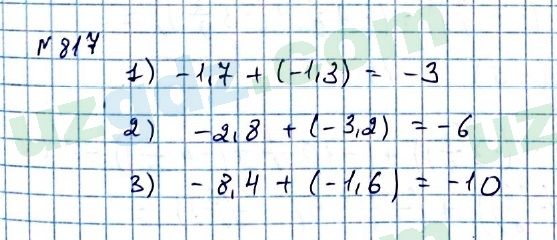 № 817
1) -1,7 + (-1,3) = -3
2) -2,8 + (-3,2) = -6
3) -8,4 + (-1,6) = -10
uzgdz.com